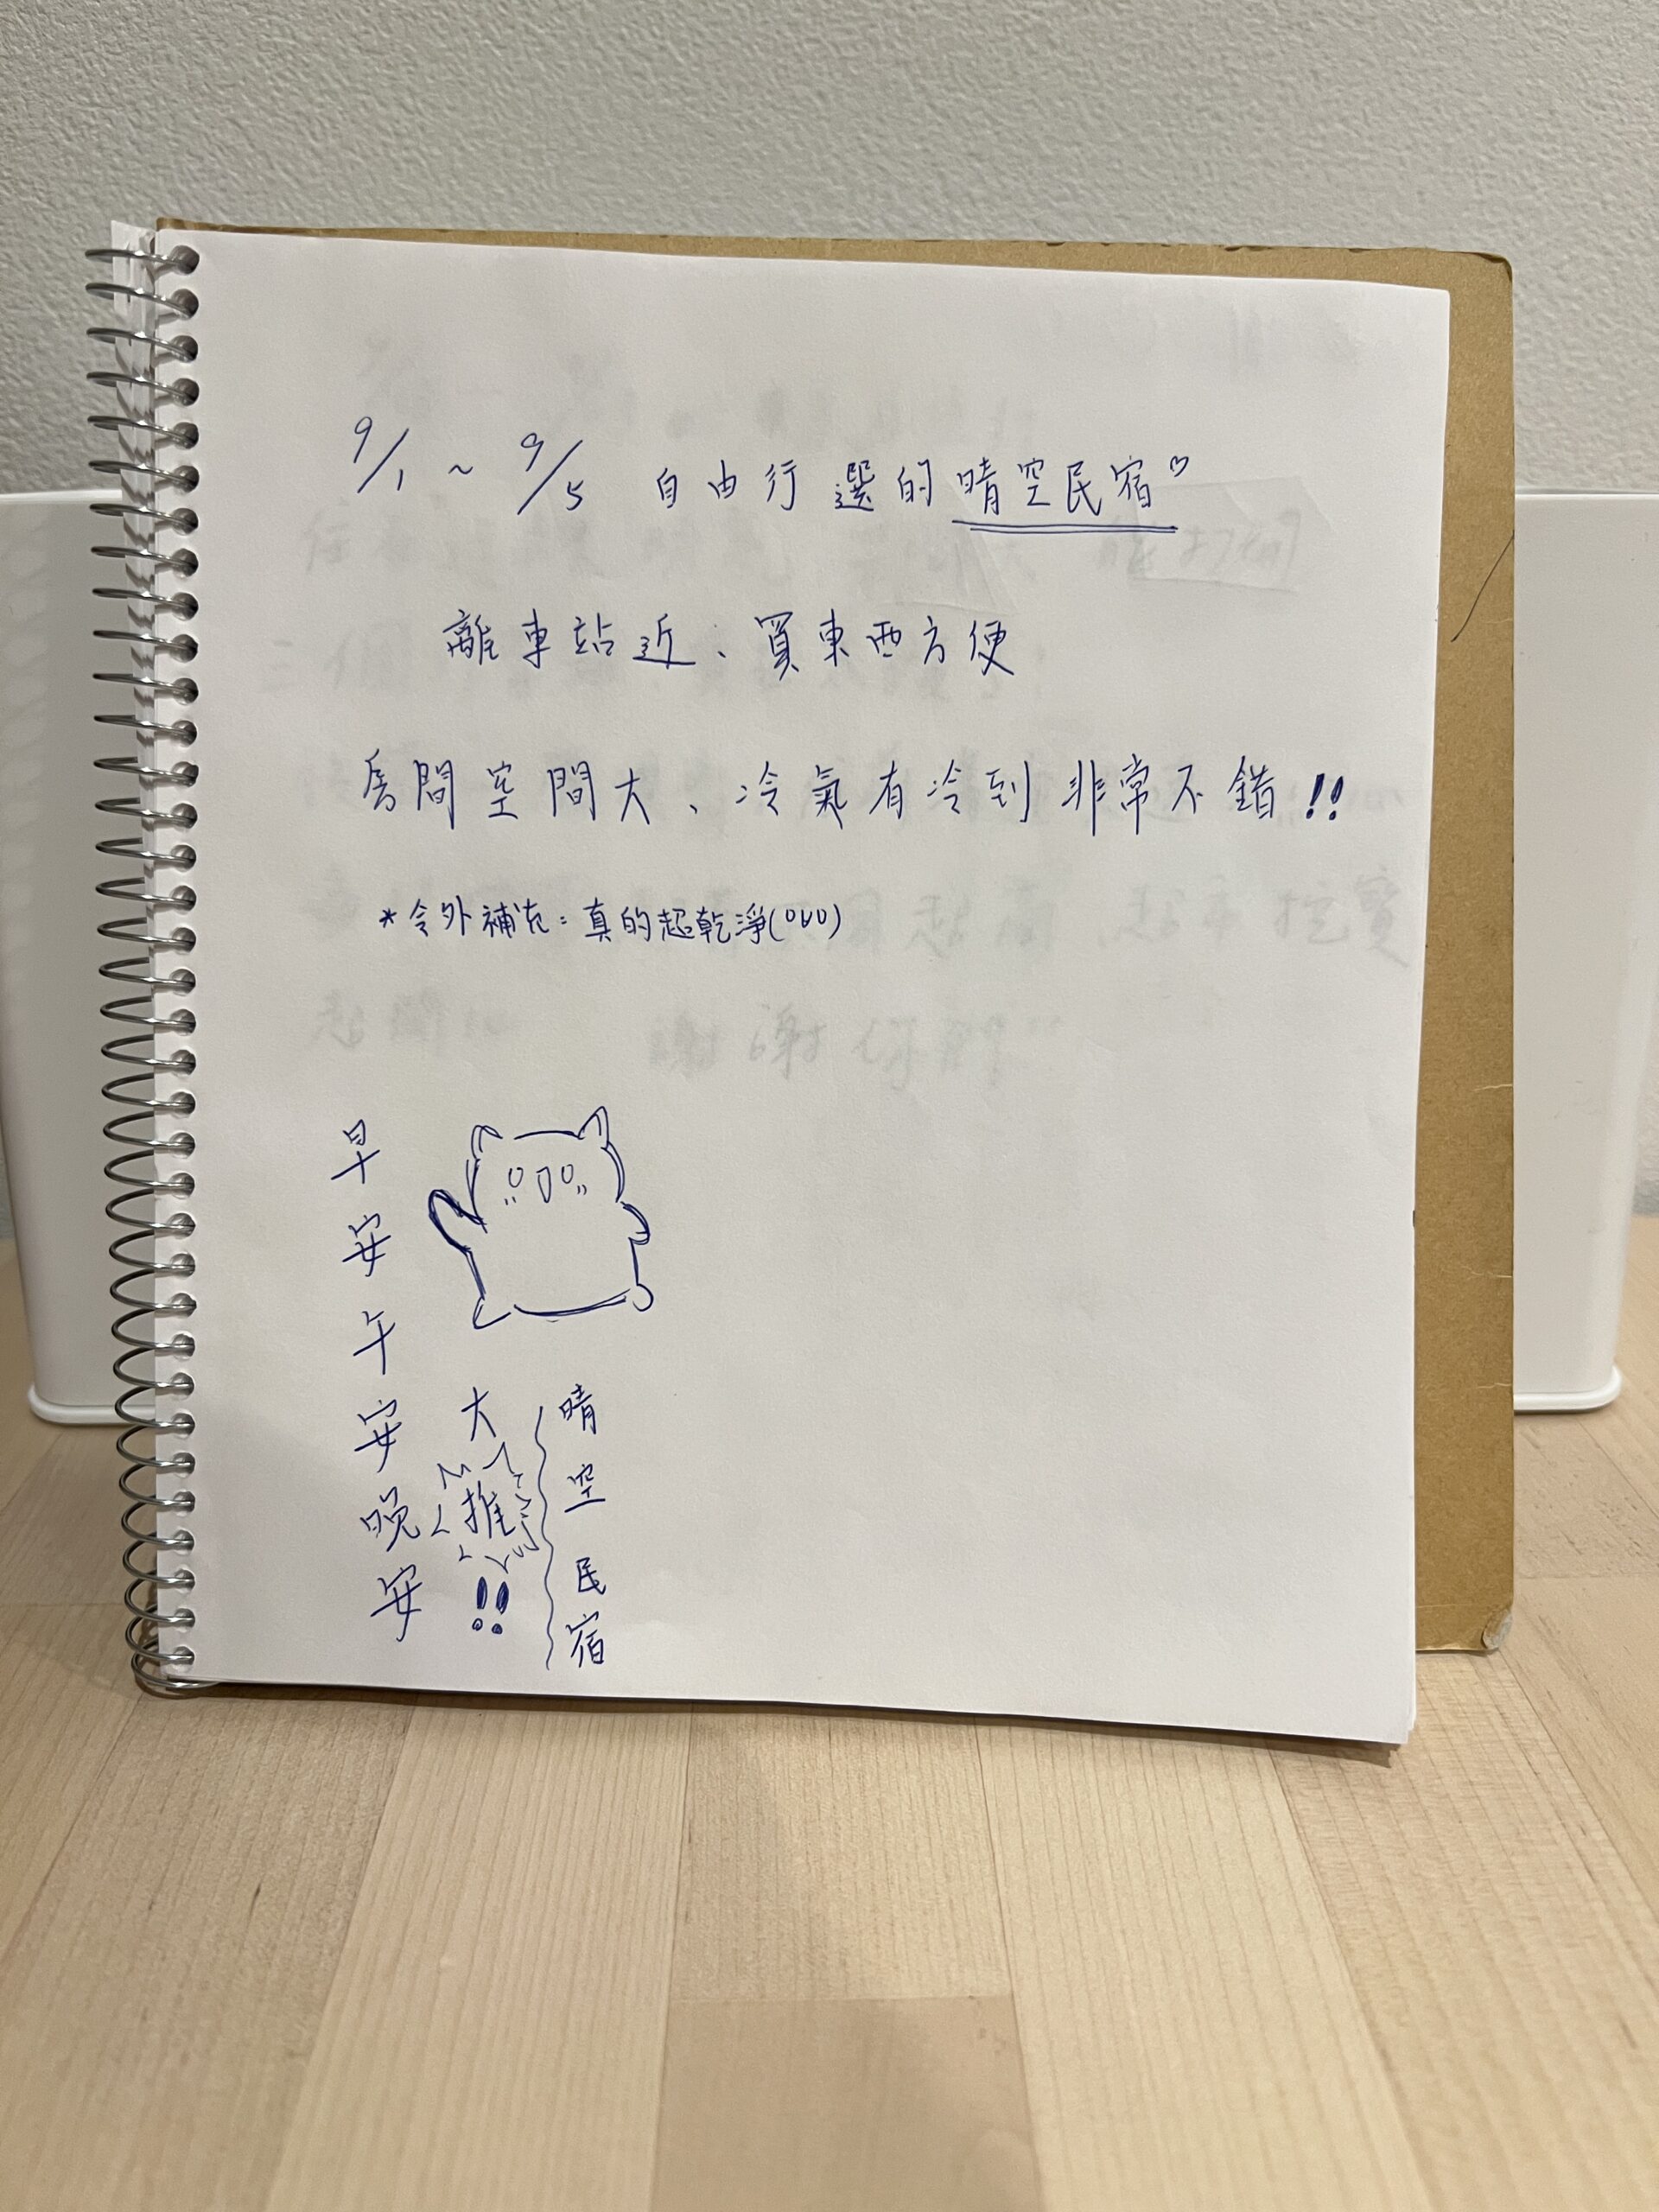 9/1 ~ 9/5 自由行 選的 晴空民宿♡
離車站近、買東西方便
房間空間大、冷氣有冷到 非常不錯!!
*令外補充:真的超乾淨(OUO)
早安午安晚安
大推!!
晴空民宿